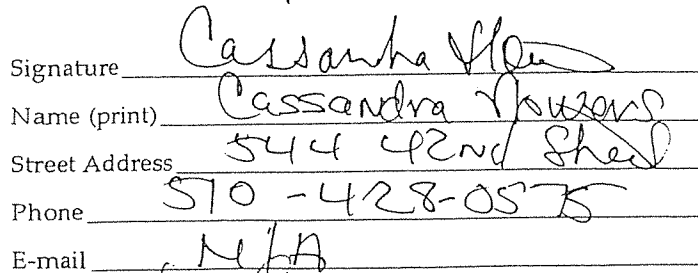 Signature Cassandra
Name (print) Cassandra
Street Address 544 42nd Street
Phone 510-428-0575
E-mail N/A